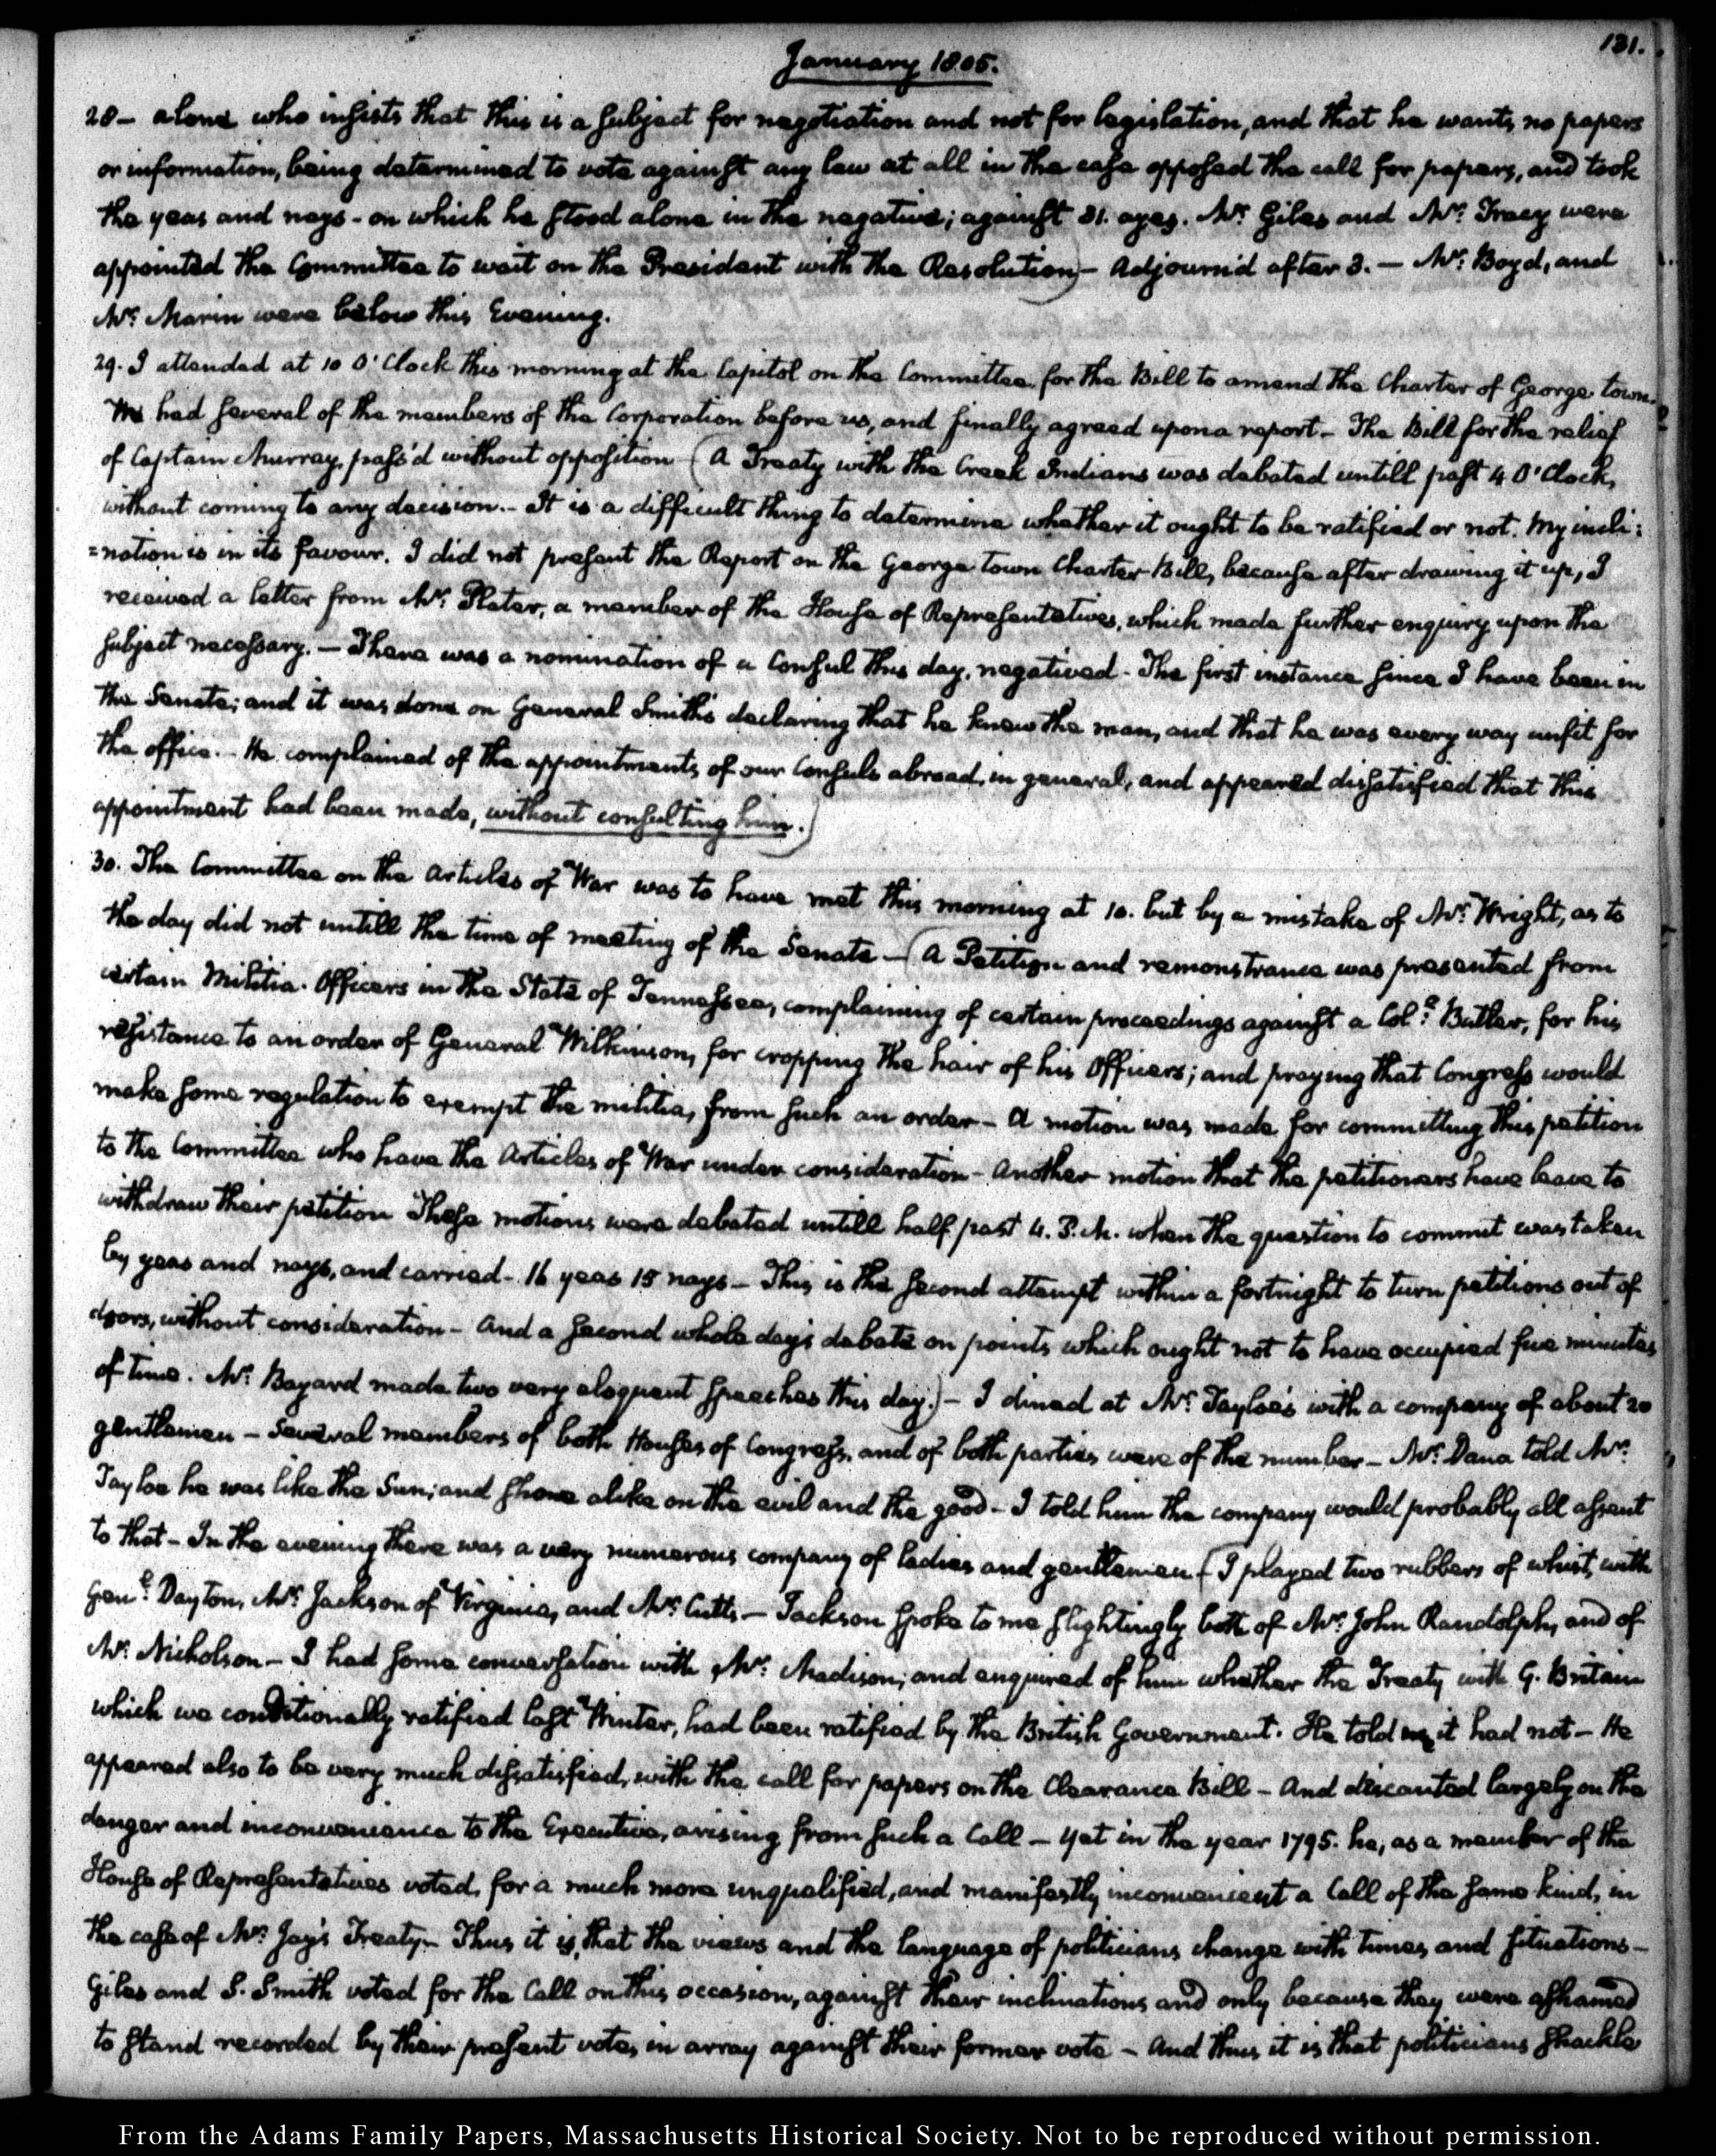 131.
January 1805.
28– alone who insists that this is a subject for negotiation and not for legislation, and that he wants no papers
or information, being determined to vote against any law at all in the case opposed the call for papers, and took
the yeas and nays - on which he stood alone in the negative; against 31. ayes. Mr: Giles and Mr: Tracy were
appointed the Committee to wait on the President with the Resolution)– Adjourn'd after 3. – Mr: Boyd, and
Mr: Marin were below this Evening.
29. I attended at 10 O'Clock this morning at the Capitol on the Committee for the Bill to amend the Charter of George town.
We had several of the members of the Corporation before us, and finally agreed upon a report– The Bill for the relief
of Captain Murray, pass'd without opposition (A Treaty with the Creek Indians was debated untill past 4 O'Clock,
without coming to any decision.– It is a difficult thing to determine whether it ought to be ratified or not. My incli:
=nation is in its favour. I did not present the Report on the George town Charter Bill, because after drawing it up, I
received a letter from Mr: Plater, a member of the House of Representatives, which made further enquiry upon the
subject necessary. – There was a nomination of a Consul this day, negatived - The first instance since I have been in
the Senate; and it was done on General Smith's declaring that he knew the man, and that he was every way unfit for
the office. - He complained of the appointments of our Consuls abroad, in general, and appeared dissatisfied that this
appointment had been made, without consulting him.)
30. The Committee on the Articles of War was to have met this morning at 10. but by a mistake of Mr: Wright, as to
the day did not untill the time of meeting of the Senate – (A Petition and remonstrance was presented from
certain Militia Officers in the State of Tennessee, complaining of certain proceedings against a Col:l Butler, for his
resistance to an order of General Wilkinson, for cropping the hair of his Officers; and praying that Congress would
make some regulation to exempt the militia, from such an order – A motion was made for committing this petition
to the Committee who have the Articles of War under consideration - Another motion that the petitioners have leave to
withdraw their petition These motions were debated untill half past 4. P.M. when the question to commit was taken
by yeas and nays, and carried - 16 yeas 15 nays – This is the second attempt within a fortnight to turn petitions out of
doors, without consideration – And a second whole day's debate on points which ought not to have occupied five minutes
of time. Mr: Bayard made two very eloquent speeches this day.) – I dined at Mr: Tayloe's with a company of about 20
gentlemen – Several members of both Houses of Congress, and of both parties were of the number – Mr: Dana told Mr:
Tayloe he was like the Sun; and shone alike on the evil and the good – I told him the company would probably all assent
to that – In the evening there was a very numerous company of ladies and gentlemen (I played two rubbers of whist, with
Gen:l Dayton, Mr: Jackson of Virginia, and Mr: Cutts – Jackson spoke to me slightingly both of Mr: John Randolph, and of
Mr: Nicholson – I had some conversation with Mr: Madison; and enquired of him whether the Treaty with G. Britain
which we conditionally ratified last Winter, had been ratified by the British Government. He told me it had not – He
appeared also to be very much dissatisfied, with the call for papers on the Clearance Bill – And descanted largely on the
danger and inconvenience to the Executive, arising from such a Call – Yet in the year 1795. he, as a member of the
House of Representatives voted, for a much more unqualified, and manifestly inconvenient a Call of the same kind, in
the case of Mr: Jay's Treaty – Thus it is, that the views and the language of politicians change with times and situations –
Giles and S. Smith voted for the Call on this occasion, against their inclinations and only because they were ashamed
to stand recorded by their present votes, in array against their former vote – And thus it is that politicians shackle
From the Adams Family Papers, Massachusetts Historical Society. Not to be reproduced without permission.